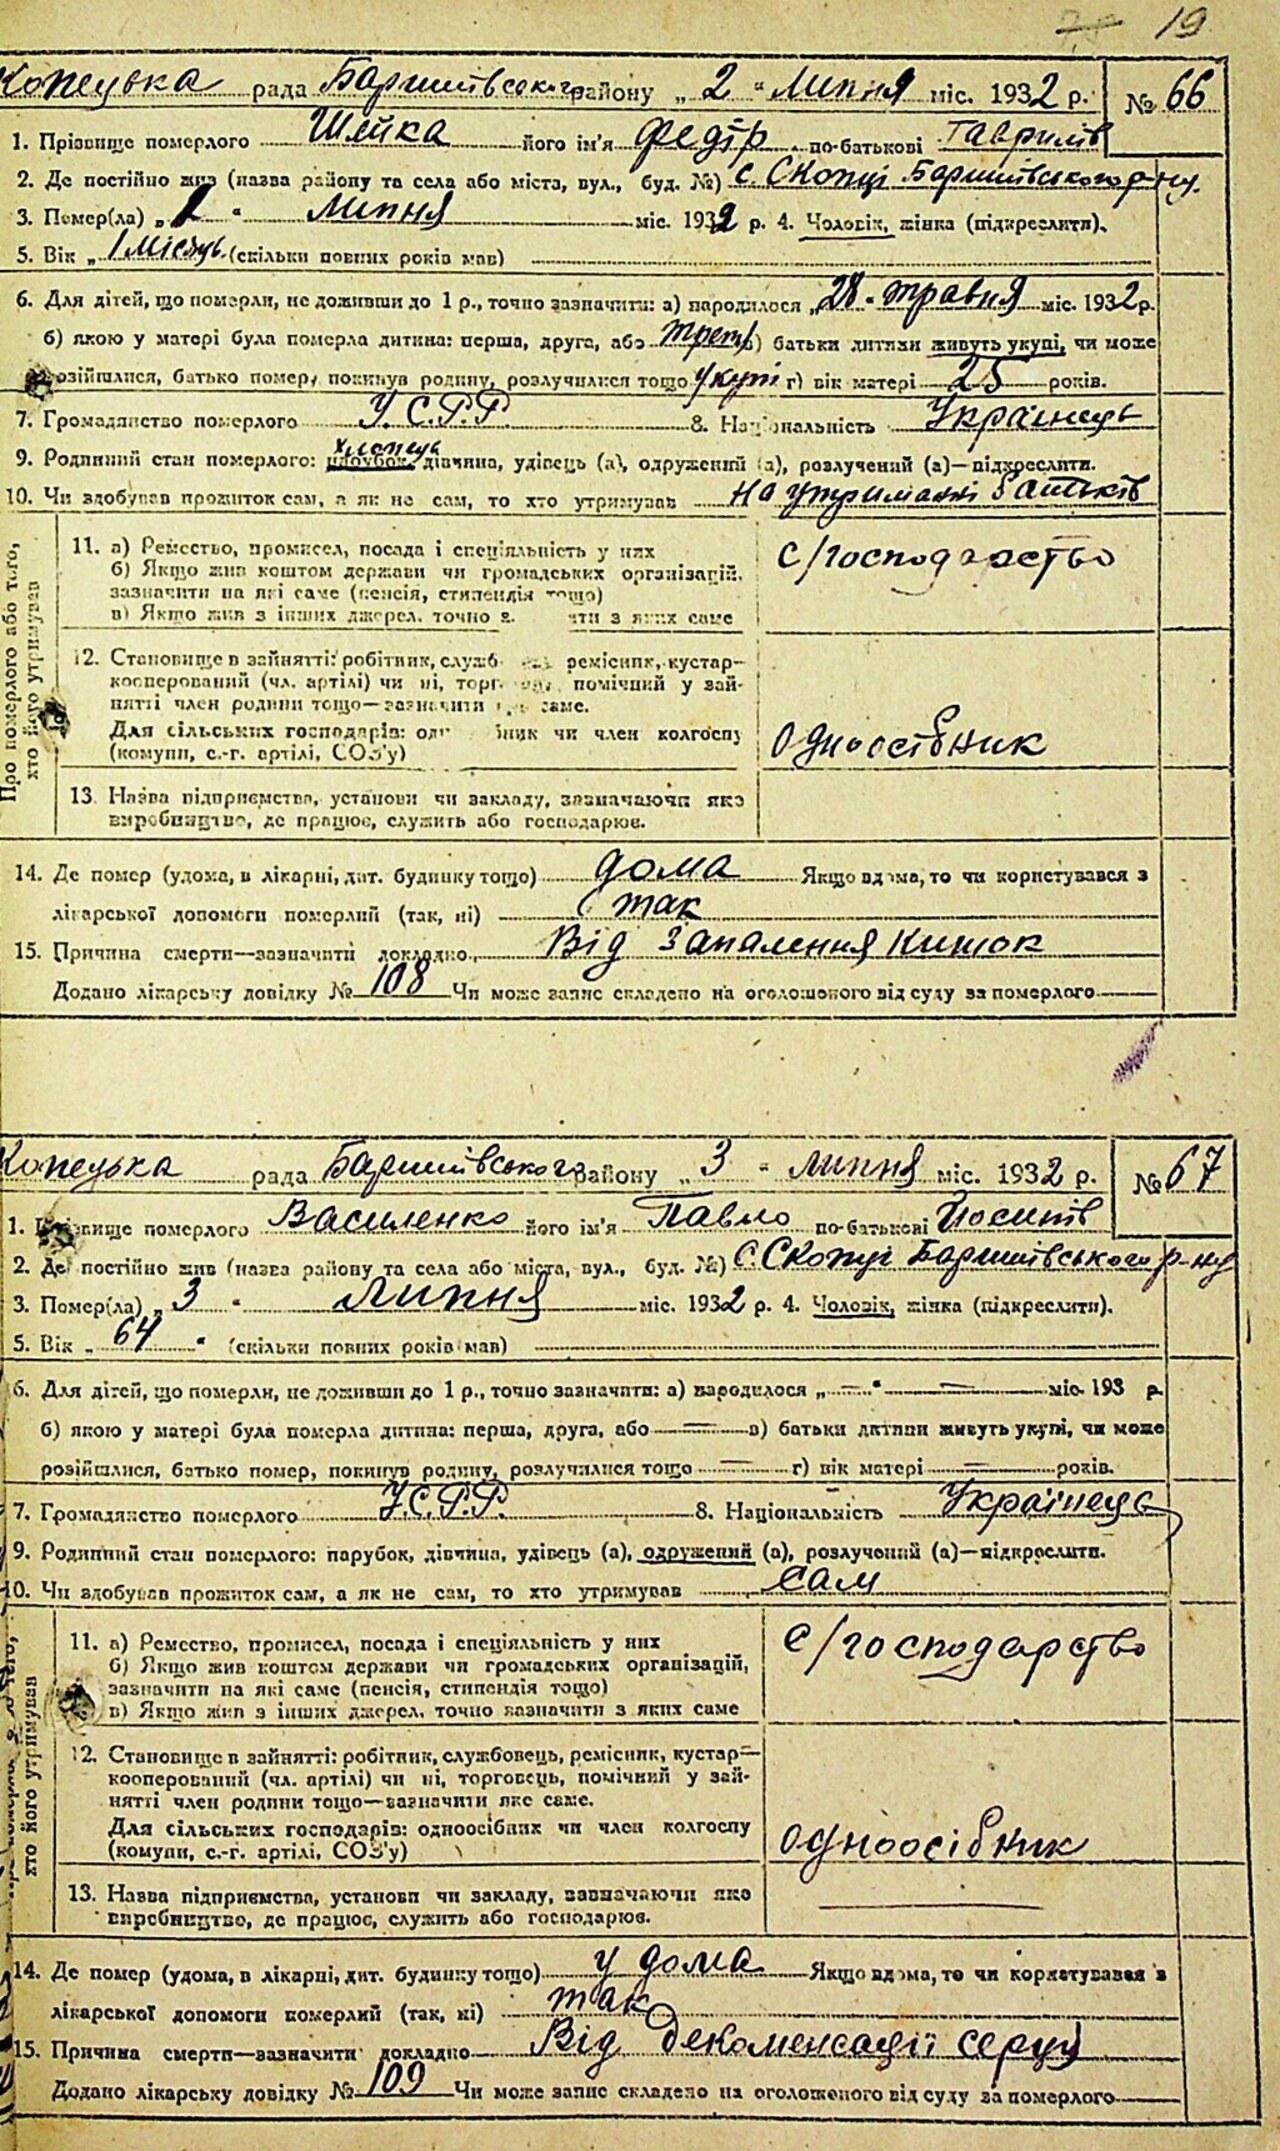 19
Копецька рада Баришівського району „ 2 “ Липня міс. 1932 р. № 66
1. Прізвище померлого Шейка його ім'я Федір по-батькові Гаврилів
2. Де постійно жив (назва району та села або міста, вул., буд. №) с. Скопці Баришівського р-ну.
3. Помер(ла) „ 2 “ Липня міс. 1932 р. 4. Чоловік, жінка (підкреслити).
5. Вік „ 1 місяць (скільки повних років мав)
6. Для дітей, що померли, не доживши до 1 р., точно зазначити: а) народилося „ 28 “ травня міс. 1932 р.
б) якою у матері була померла дитина: перша, друга, або трет в) батьки дитини живуть укупі, чи може
розійшлися, батько помер, покинув родину, розлучилися тощо укупі г) вік матері 25 років.
7. Громадянство померлого У.С.Р.Р. 8. Національність Українець
хлопець
9. Родинний стан померлого: парубок, дівчина, удівець (а), одружений (а), розлучений (а)—підкреслити.
10. Чи здобував прожиток сам, а як не сам, то хто утримував на утриманні батьків
Про померлого або того,
хто його утримував
11. а) Ремество, промисел, посада і спеціяльність у них с/господарство
б) Якщо жив коштом держави чи громадських організацій,
зазначити на які саме (пенсія, стипендія тощо)
в) Якщо жив з інших джерел, точно з яких саме
12. Становище в зайнятті: робітник, служб ремісник, кустар-
кооперований (чл. артілі) чи ні, торг помічний у зай-
нятті член родини тощо—зазначити саме.
Для сільських господарів: од ник чи член колгоспу
(комуни, с.-г. артілі, СОЗ'у) Одноосібник
13. Назва підприємства, установи чи закладу, зазначаючи яке
виробництво, де працює, служить або господарює.
14. Де помер (удома, в лікарні, дит. будинку тощо) дома Якщо вдома, то чи користувався з
лікарської допомоги померлий (так, ні) так
15. Причина смерти—зазначити докладно Від запалення кишок
Додано лікарську довідку № 108 Чи може запис складено на оголошеного від суду за померлого
Копецька рада Баришівського району „ 3 “ липня міс. 1932 р. № 67
1. Прізвище померлого Василенко його ім'я Павло по-батькові Йосипів
2. Де постійно жив (назва району та села або міста, вул., буд. №) с. Скопці Баришівського р-ну
3. Помер(ла) „ 3 “ Липня міс. 1932 р. 4. Чоловік, жінка (підкреслити).
5. Вік „ 64 “ (скільки повних років мав)
6. Для дітей, що померли, не доживши до 1 р., точно зазначити: а) народилося „ — “ — міс. 193 р.
б) якою у матері була померла дитина: перша, друга, або — в) батьки дитини живуть укупі, чи може
розійшлися, батько помер, покинув родину, розлучилися тощо — г) вік матері — років.
7. Громадянство померлого У.С.Р.Р. 8. Національність Українець
9. Родинний стан померлого: парубок, дівчина, удівець (а), одружений (а), розлучений (а)—підкреслити.
10. Чи здобував прожиток сам, а як не сам, то хто утримував сам
хто його утримував
11. а) Ремество, промисел, посада і спеціяльність у них с/господарство
б) Якщо жив коштом держави чи громадських організацій,
зазначити на які саме (пенсія, стипендія тощо)
в) Якщо жив з інших джерел, точно зазначити з яких саме
12. Становище в зайнятті: робітник, службовець, ремісник, кустар-
кооперований (чл. артілі) чи ні, торговець, помічний у зай-
нятті член родини тощо—зазначити яке саме.
Для сільських господарів: одноосібник чи член колгоспу
(комуни, с.-г. артілі, СОЗ'у) одноосібник
13. Назва підприємства, установи чи закладу, зазначаючи яке
виробництво, де працює, служить або господарює.
14. Де помер (удома, в лікарні, дит. будинку тощо) у дома Якщо вдома, то чи користувався з
лікарської допомоги померлий (так, ні) так
15. Причина смерти—зазначити докладно Від декоменсації серця
Додано лікарську довідку № 109 Чи може запис складено на оголошеного від суду за померлого